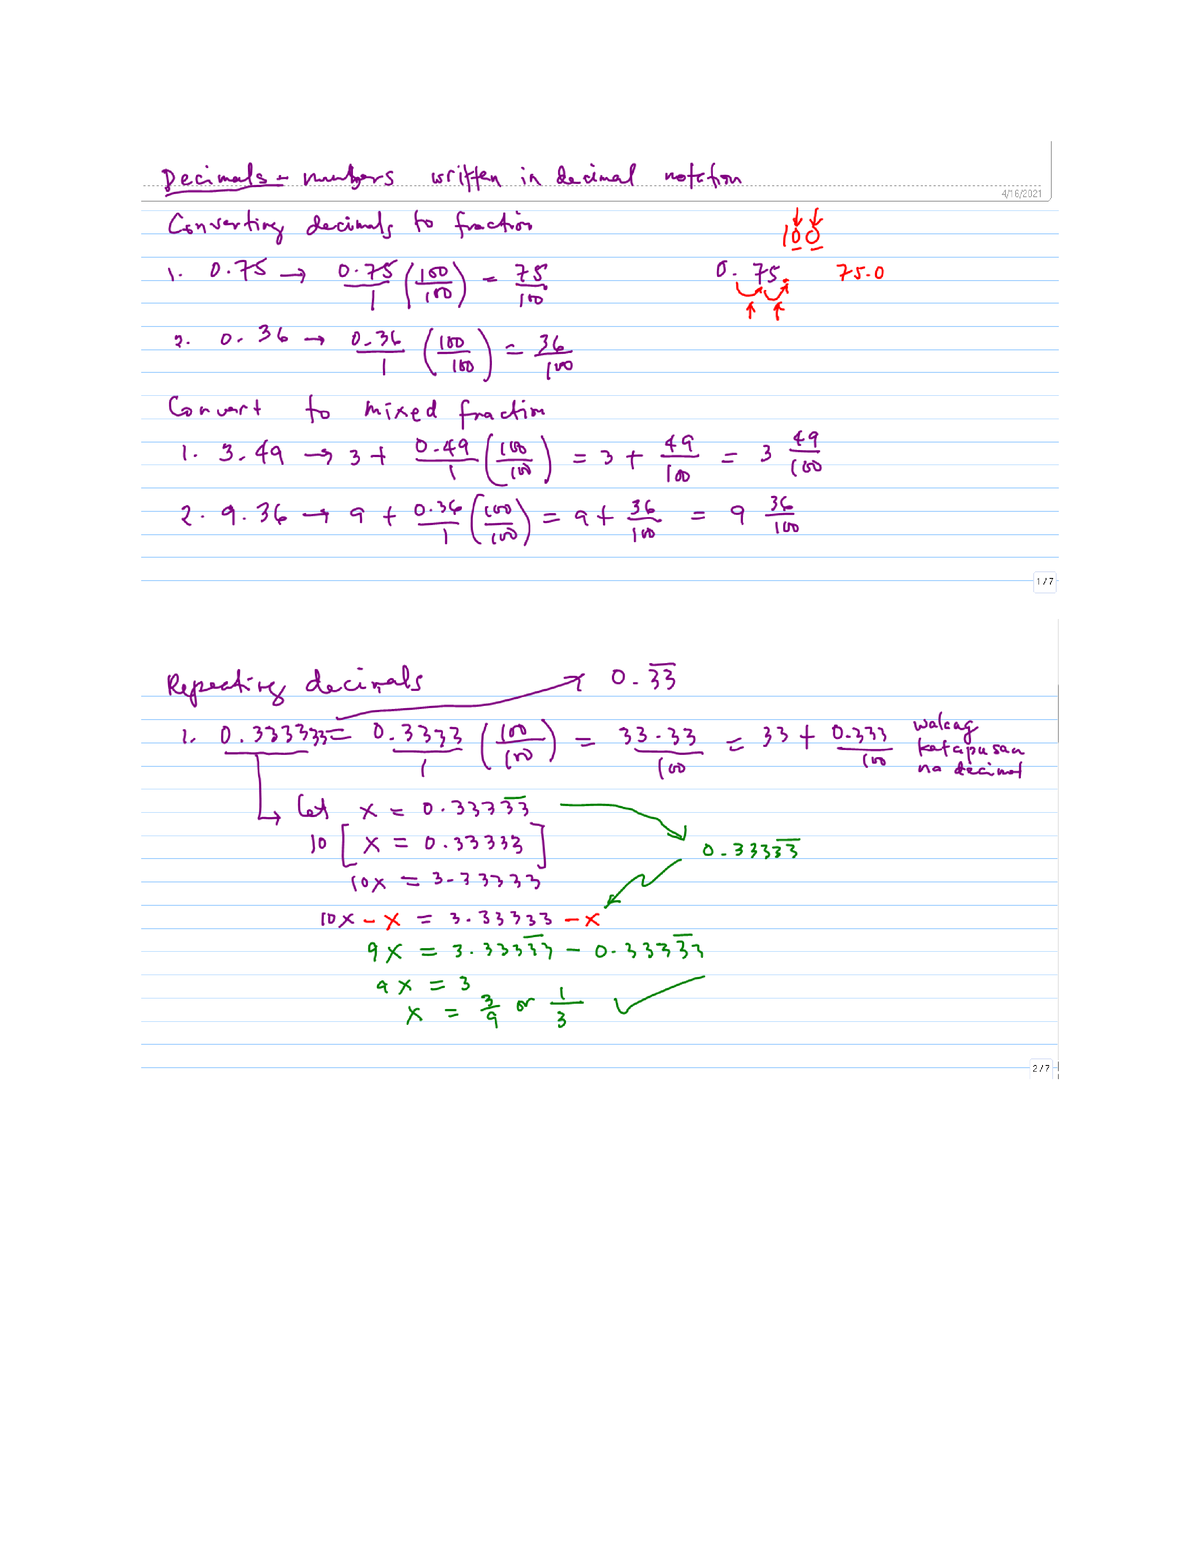 Decimals - numbers written in decimal notation
4/16/2021
Converting decimals to fraction
100
1. 0.75 → 0.75/1 (100/100) = 75/100
0.75. 75.0
2. 0.36 → 0.36/1 (100/100) = 36/100
Convert to mixed fraction
1. 3.49 → 3 + 0.49/1 (100/100) = 3 + 49/100 = 3 49/100
2. 9.36 → 9 + 0.36/1 (100/100) = 9 + 36/100 = 9 36/100
1/7
Repeating decimals → 0.3̅3̅
1. 0.333333 = 0.3333/1 (100/100) = 33.33/100 = 33 + 0.333/100
walang
katapusan
na decimal
Let x = 0.3333̅3̅
10 [x = 0.33333]
0.3333̅3̅
10x = 3.33333
10x - x = 3.33333 - x
9x = 3.3333̅3 - 0.3333̅3
9x = 3
x = 3/9 or 1/3 ✓
2/7